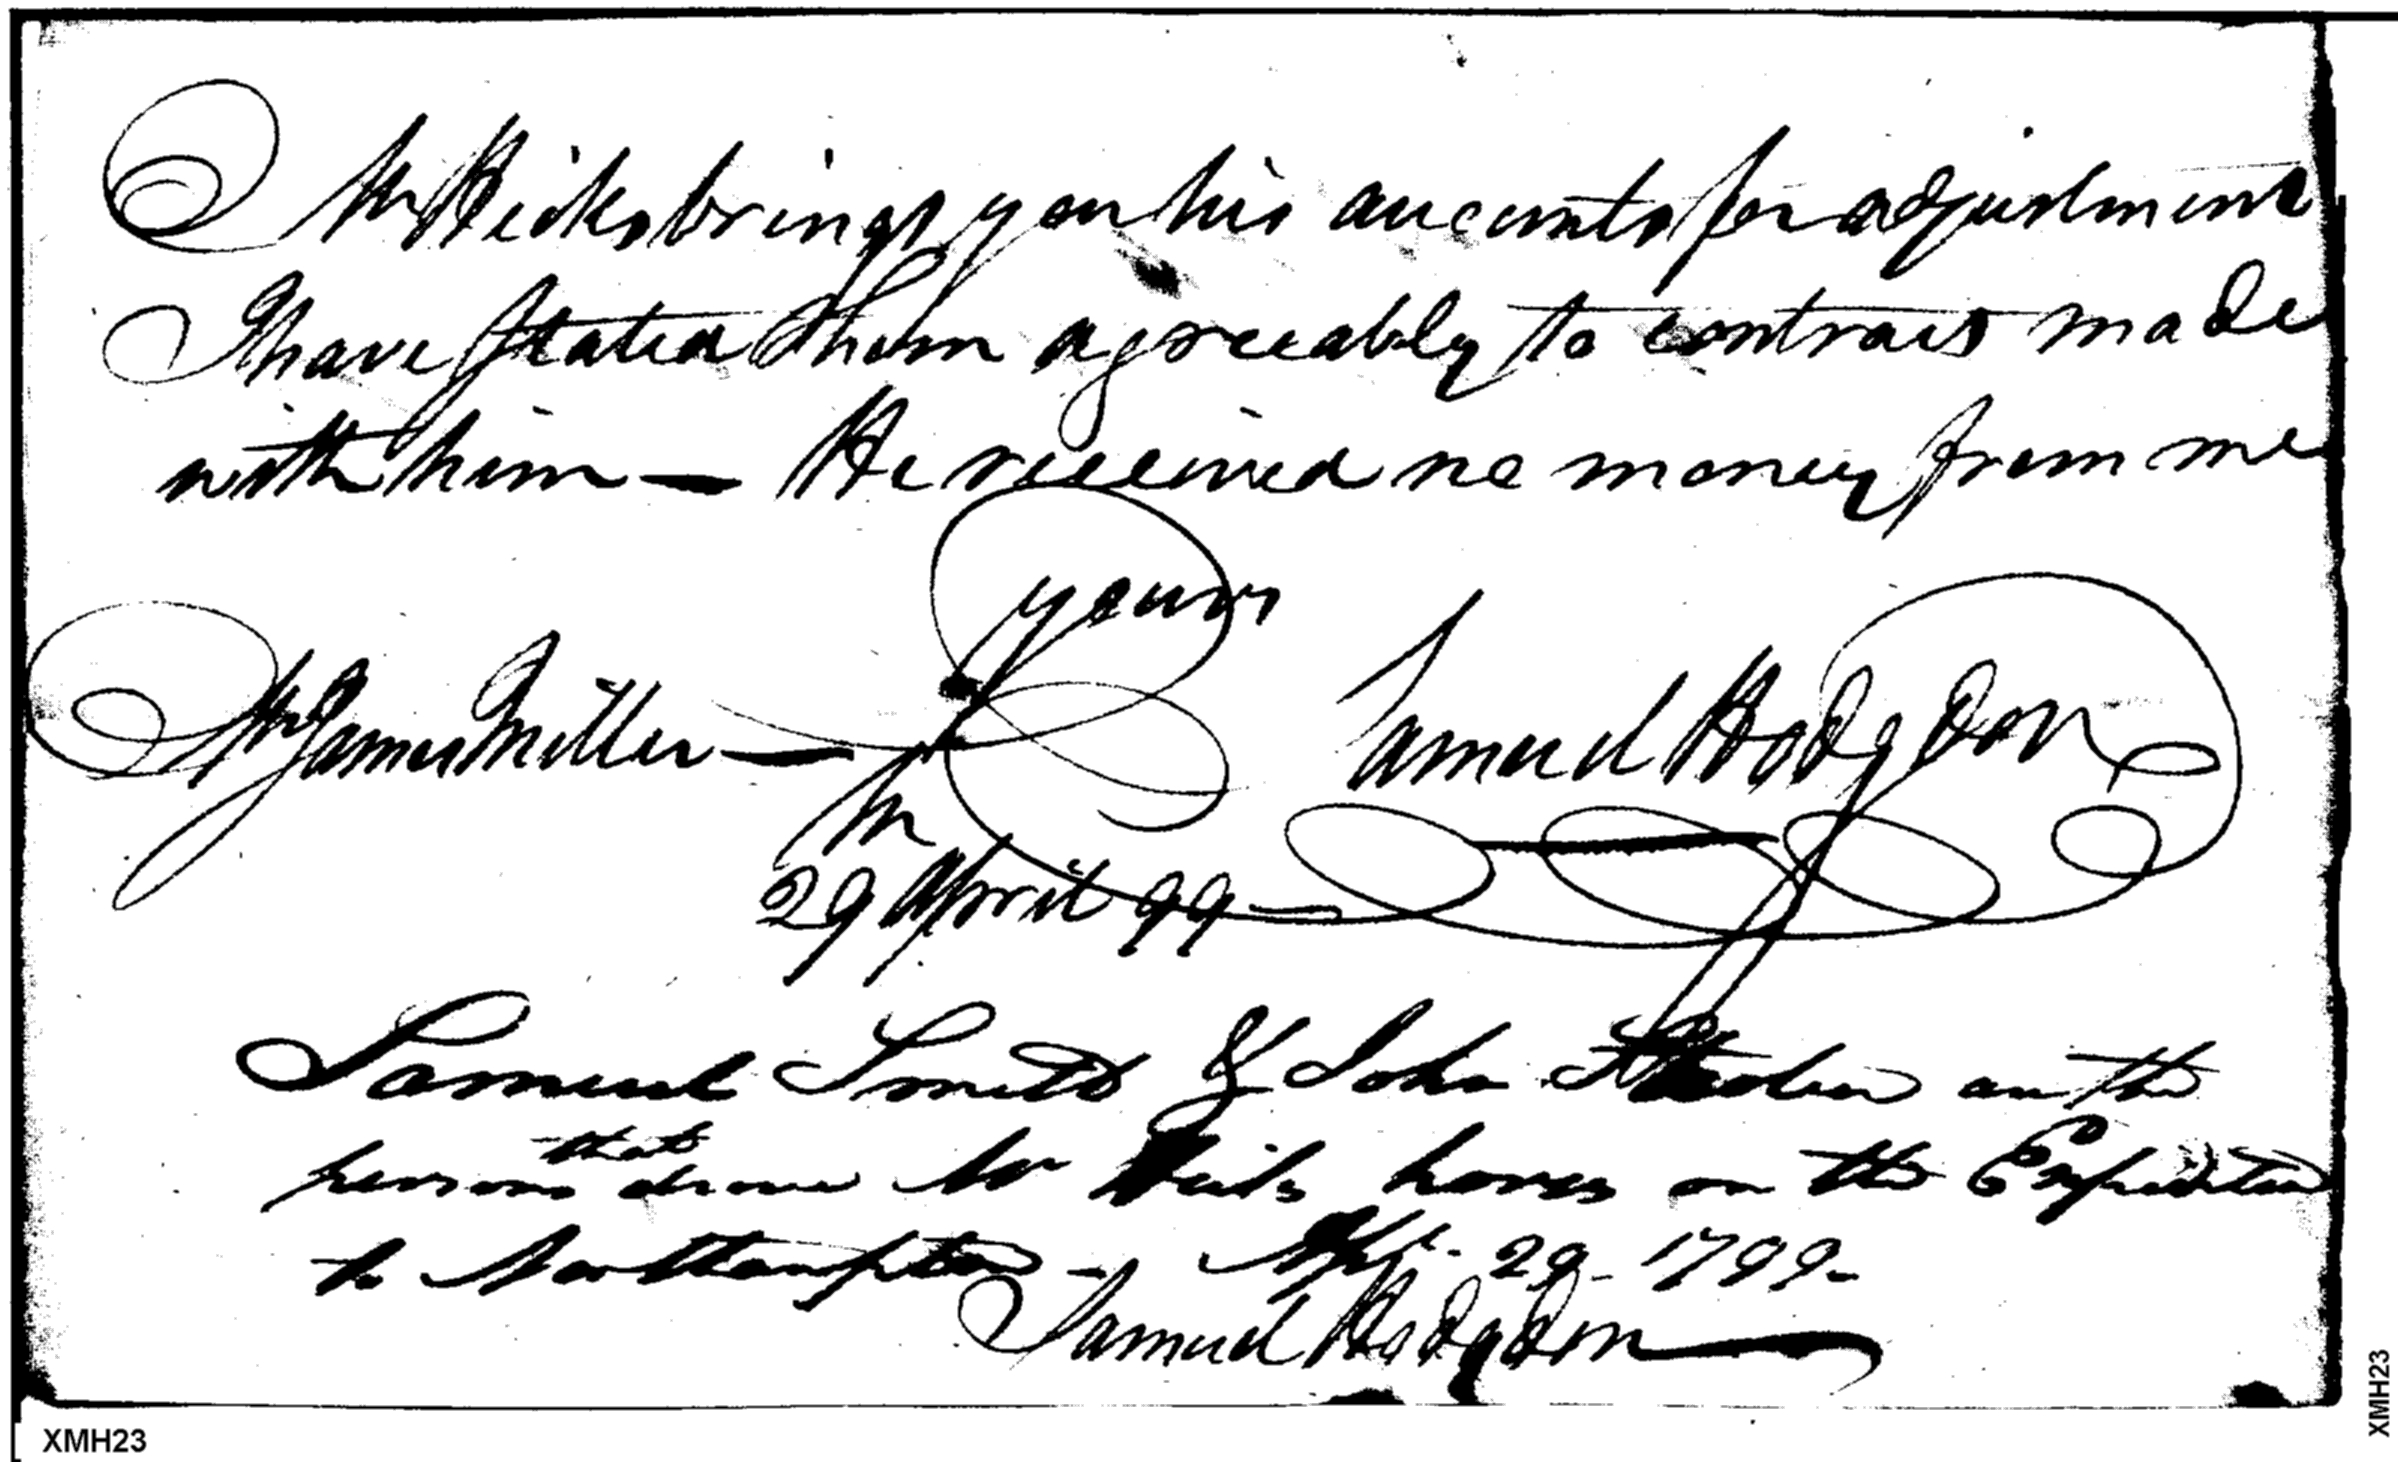 Mr Hicks brings you his accounts for adjustment
I have stated them agreeably to contract made
with him — He received no money from me
yours
Mr James Miller — Samuel Hodgdon
29 April 99
Samuel Smith & John are the
that
persons drove Mr Hicks horses on the Expedition
to Northampton - Apl. 29 - 1799 -
Samuel Hodgdon
XMH23
XMH23